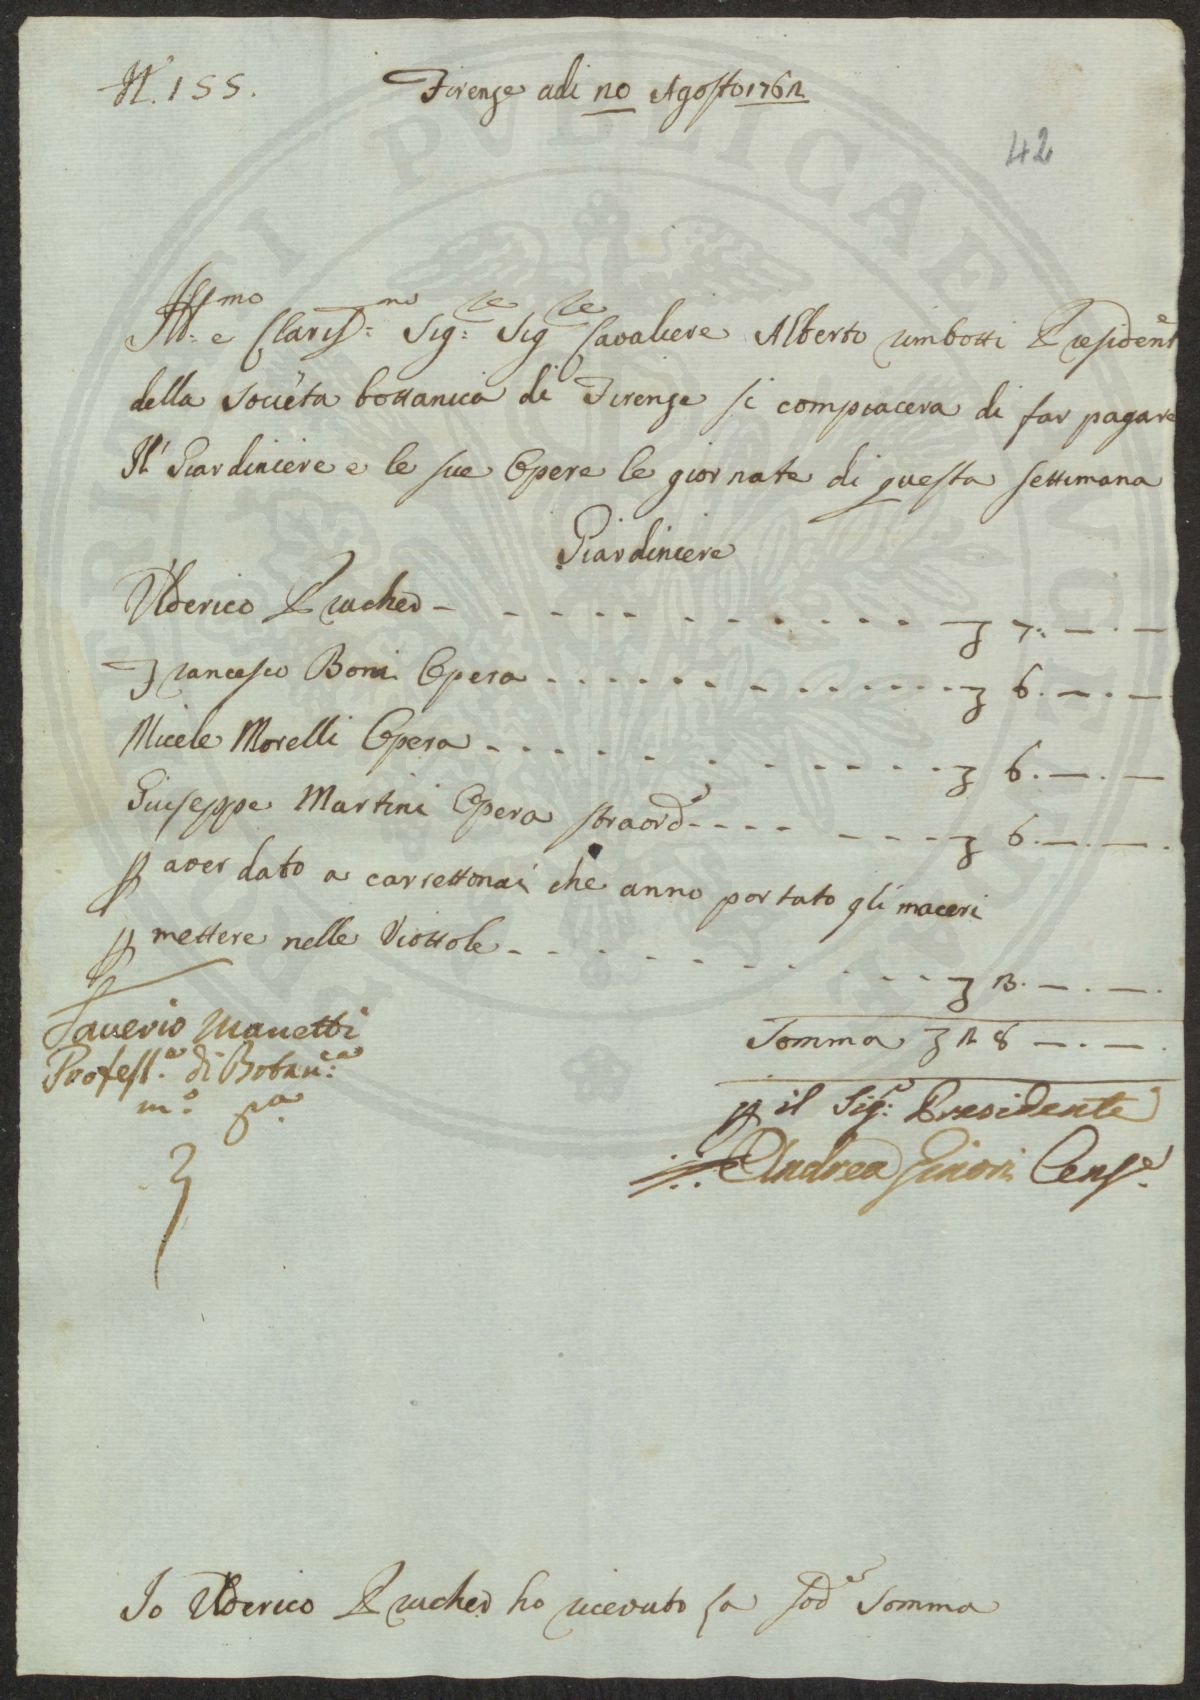 N. 155.
Firenze adi 20 Agosto 1762
42
Ill:mo e Clariss:mo Sig:re Sig:re Cavaliere Alberto Rimbotti Presidente
della Società bottanica di Firenze si compiacera di far pagare
Il Giardiniere e le sue Opere le giornate di questa settimana
Giardiniere
Ulderico Prucher - - - - - - - - - - 7: — . —
Francesco Boni Opera - - - - - - - - - - 6. — . —
Micele Morelli Opera - - - - - - - - - - 6. — . —
Giuseppe Martini Opera straord.e - - - - - - - 6. — . —
p aver dato a carrettonai che anno portato gli maceri
p mettere nelle Viottole - - - - - - - - - 3. — . —
Saverio Manetti
Profess.e di Botan:ca
m.o pa
Somma 28 — . —
p il Sig:e Presidente
Andrea Ginori Cens.e
Io Ulderico Prucher ho ricevuto la sod.e Somma
PVBLICAE